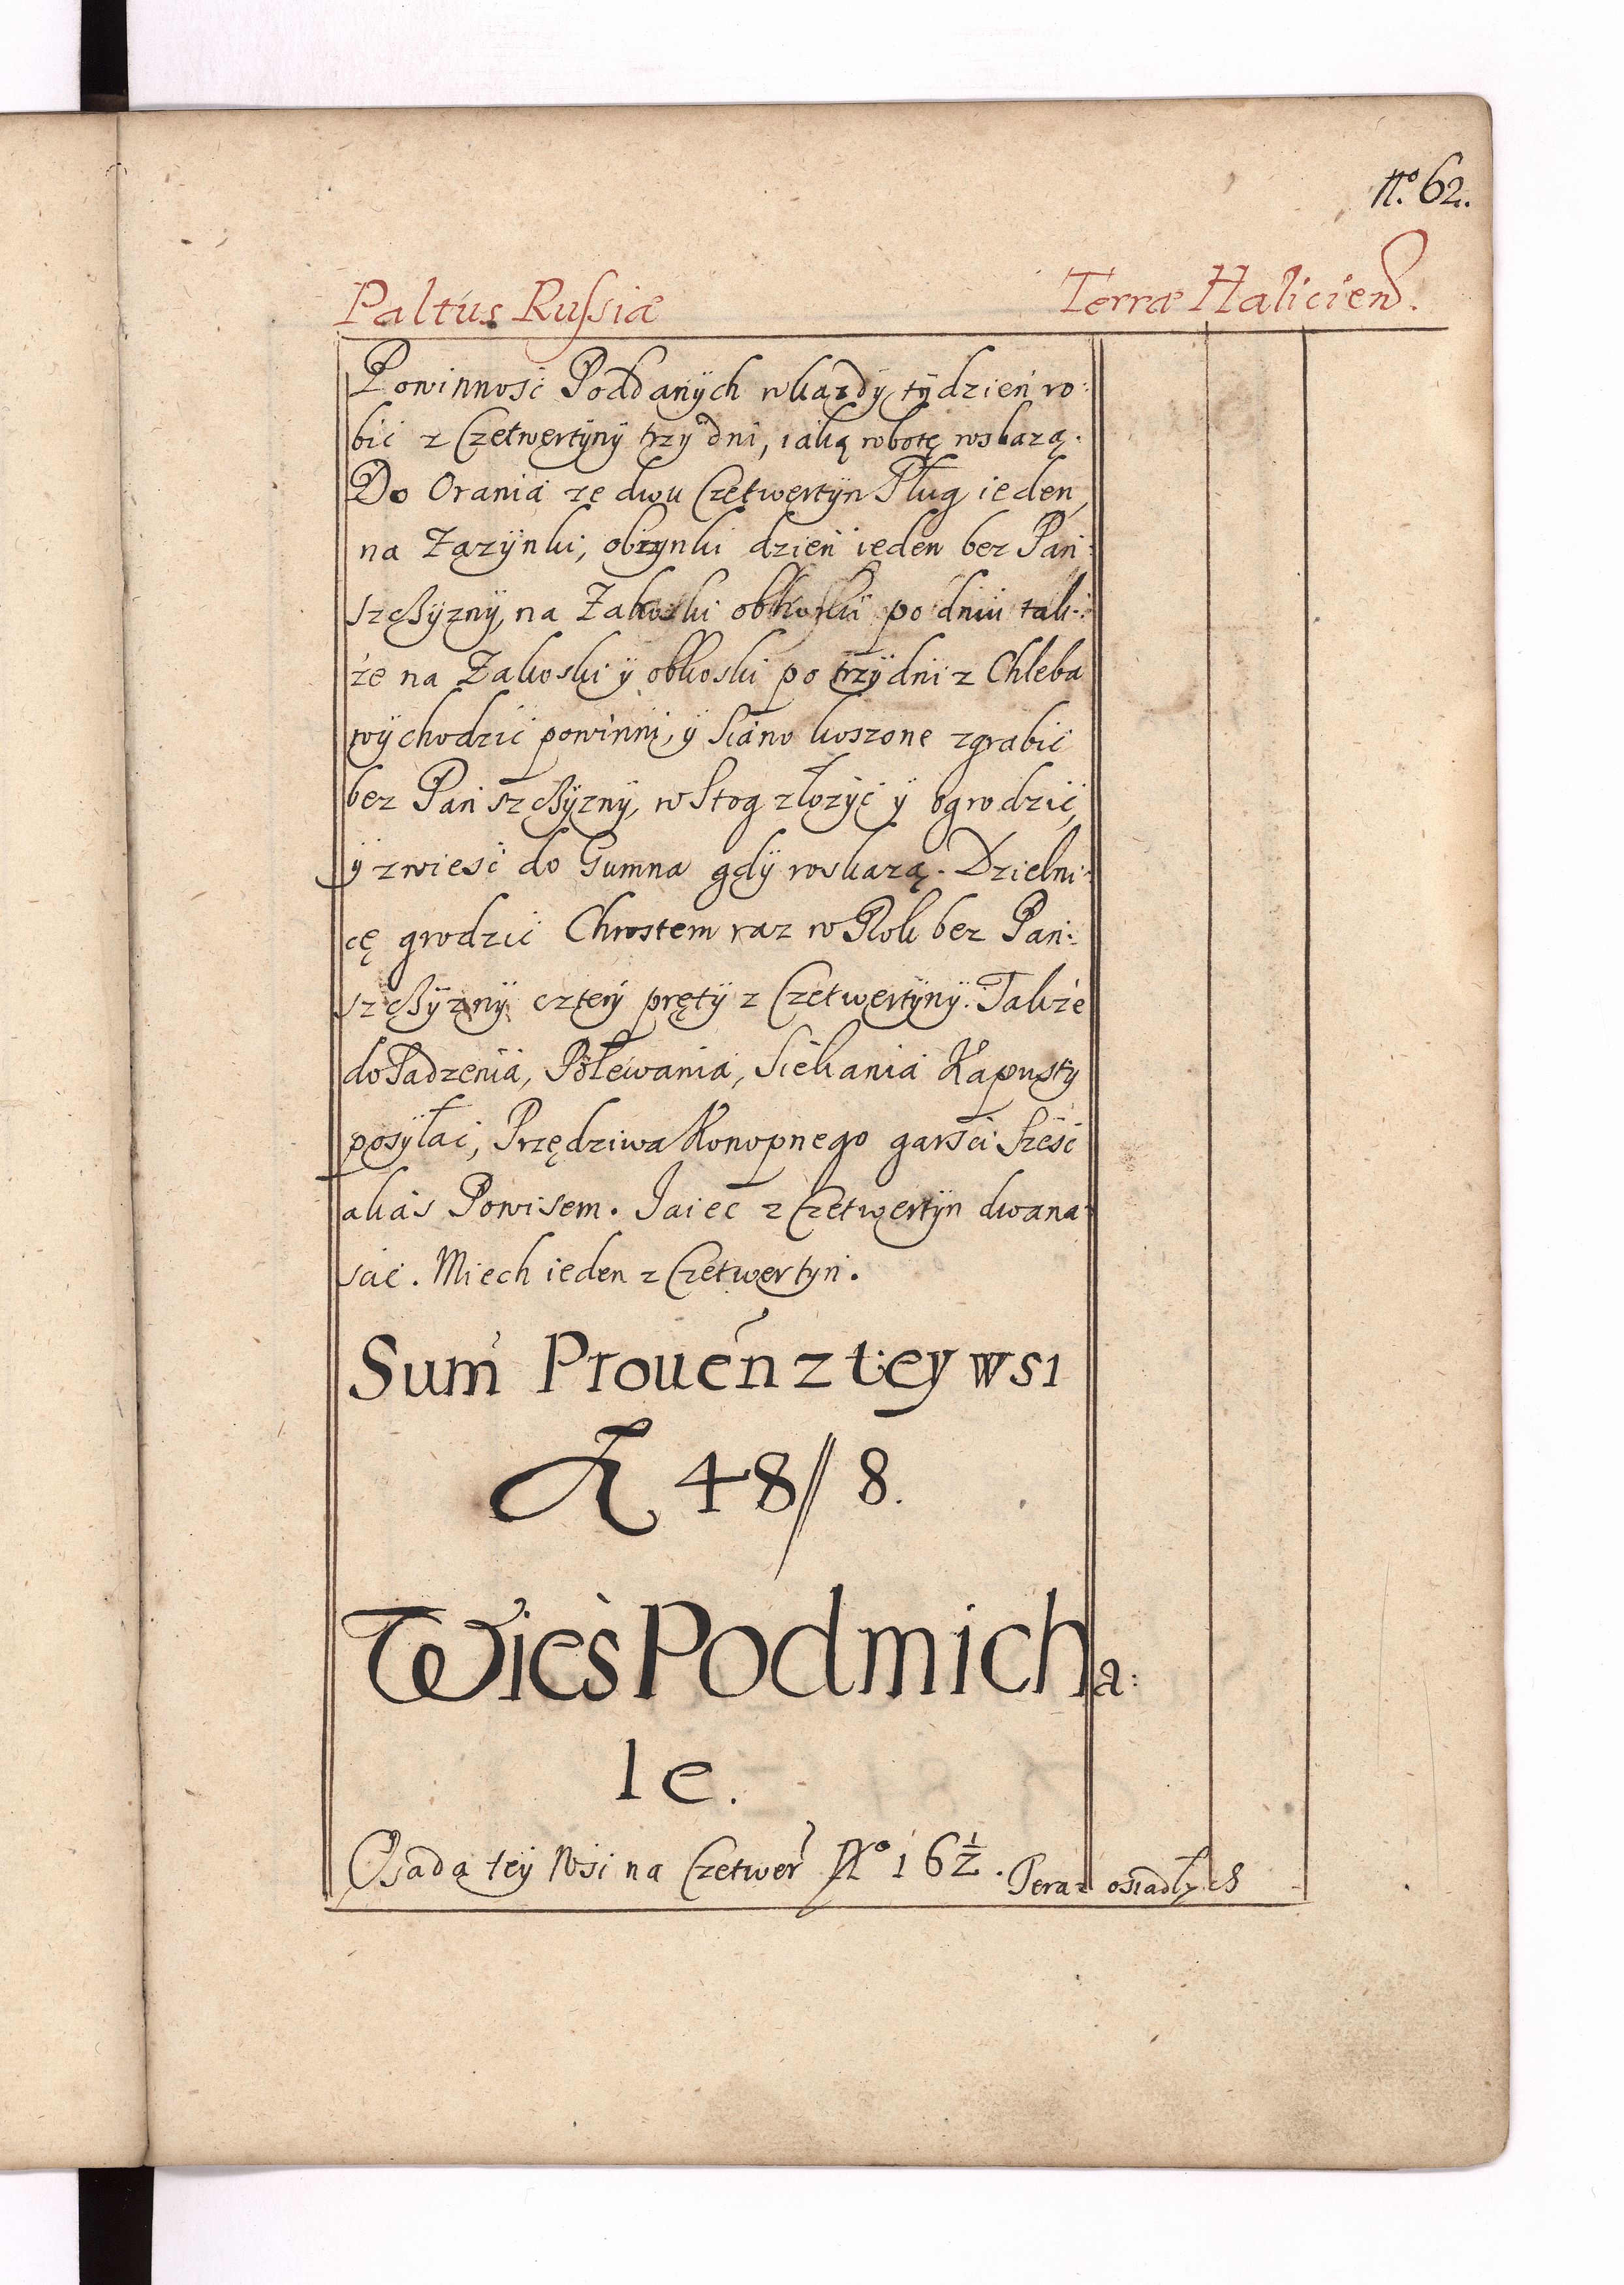 No. 62.
Paltus Russiæ Terræ Halicien.
Powinność Poddanÿch wkazdÿ tÿdzień ro:
bić z Czetwertÿnÿ trzÿ dni, iaką robotę roskazą.
Do Orania ze dwu Czetwertÿn Pług ieden,
na Zazÿnki, obzynki dzień ieden bez Pań:
szcżÿznÿ, na Zakoski obkoski po dniu tak:
że na Zakoski ÿ obkoski po trzÿ dni z Chleba
wÿchodzić powinni, ÿ Siano koszone zgrabić
bez Pańszcżÿznÿ, w Stog złożÿć ÿ ogrodzić,
ÿ zwieść do Gumna gdÿ roskazą. Dzielni:
cę grodzić Chrostem raz w Rok bez Pań:
szcżÿznÿ czterÿ prętÿ z Czetwertÿnÿ. Także
do Sadzenia, Polewania, Siekania Kapusty
posÿłać, Przędziwa Konopnego garści Sześć
akas Powisem. Jaiec z Czetwertÿn dwana:
scie. Miech ieden z Czetwertyn.
Sum Prouen z tey wsi
fl 48// 8.
Wieś Podmicha:
le.
Osada teÿ Wsi na Czetwer No 16½. Teraz osiadłÿch 8